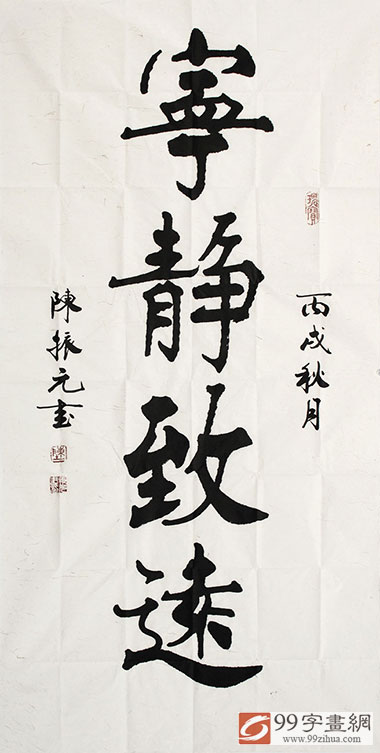 丙戌秋月
寧靜致遠
陳振元書
99字畫網
www.99zihua.com